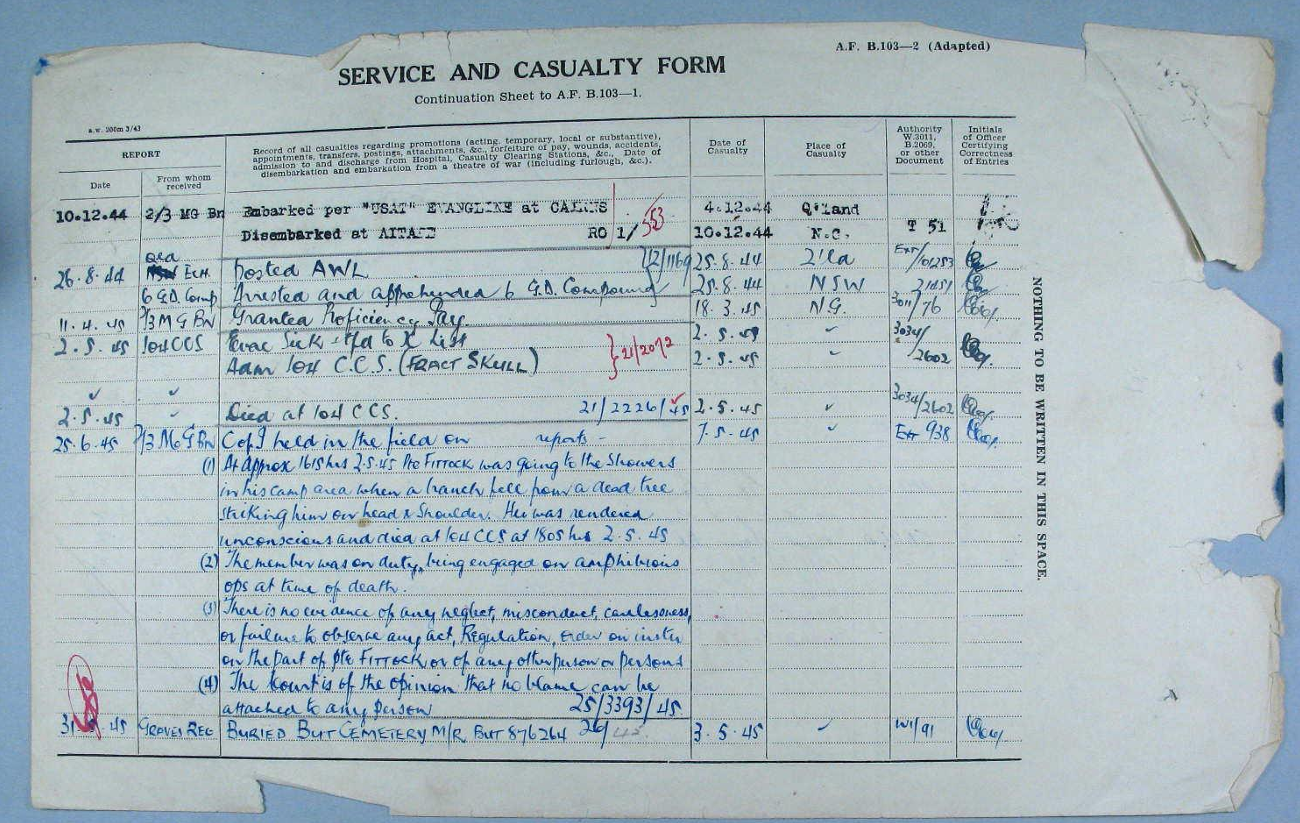 A.F. B.103—2 (Adapted)
SERVICE AND CASUALTY FORM
Continuation Sheet to A.F. B.103—1.
a.w. 200m 3/43
REPORT
Date
From whom received
Record of all casualties regarding promotions (acting, temporary, local or substantive), appointments, transfers, postings, attachments, &c., forfeiture of pay, wounds, accidents, admission to and discharge from Hospital, Casualty Clearing Stations, &c., Date of disembarkation and embarkation from a theatre of war (including furlough, &c.).
Date of Casualty
Place of Casualty
Authority W.3011, B.2069, or other Document
Initials of Officer Certifying Correctness of Entries
10.12.44 2/3 MG Bn Embarked per "USAT" EVANGLINE at CAIRNS 4.12.44 Q'land
Disembarked at AITAPE RO 1/353 10.12.44 N.G. T 51
26.8.44 Ech posted AWL 25.8.44 Q'ld
6 G.D. Comp Arrested and apprehended 6 G.D. Compound 25.8.44 NSW
11.4.45 2/3 M G BN Granted Proficiency Pay. 18.3.45 N.G. 3011/76
2.5.45 104 CCS Evac Sick tfd to X List 2.5.45 ✓ 3034/
Adm 104 C.C.S. (FRACT SKULL) 21/2072 2.5.45 ✓ 2602
✓ ✓
2.5.45 ✓ Died at 104 CCS. 21/2226/45 2.5.45 ✓ 3034/2602
25.6.45 2/3 M G BN C of I held in the field on reports - 7.5.45 ✓ 938
(1) At Approx 1615 hrs 2.5.45 Pte FITTOCK was going to the Showers
in his camp area when a branch fell from a dead tree
striking him on head & shoulder. He was rendered
unconscious and died at 104 CCS at 1805 hrs 2.5.45
(2) The member was on duty, being engaged on amphibious
ops at time of death.
(3) There is no evidence of any neglect, misconduct, carelessness,
or failure to observe any act, Regulation, order or instn
on the part of Pte FITTOCK or of any other person or persons
(4) The Court is of the opinion that no blame can be
attached to any person 25/3393/45
31 45 GRAVES REG BURIED BUT CEMETERY M/R BUT 876264 26/ 3.5.45 ✓ W1/91
NOTHING TO BE WRITTEN IN THIS SPACE.